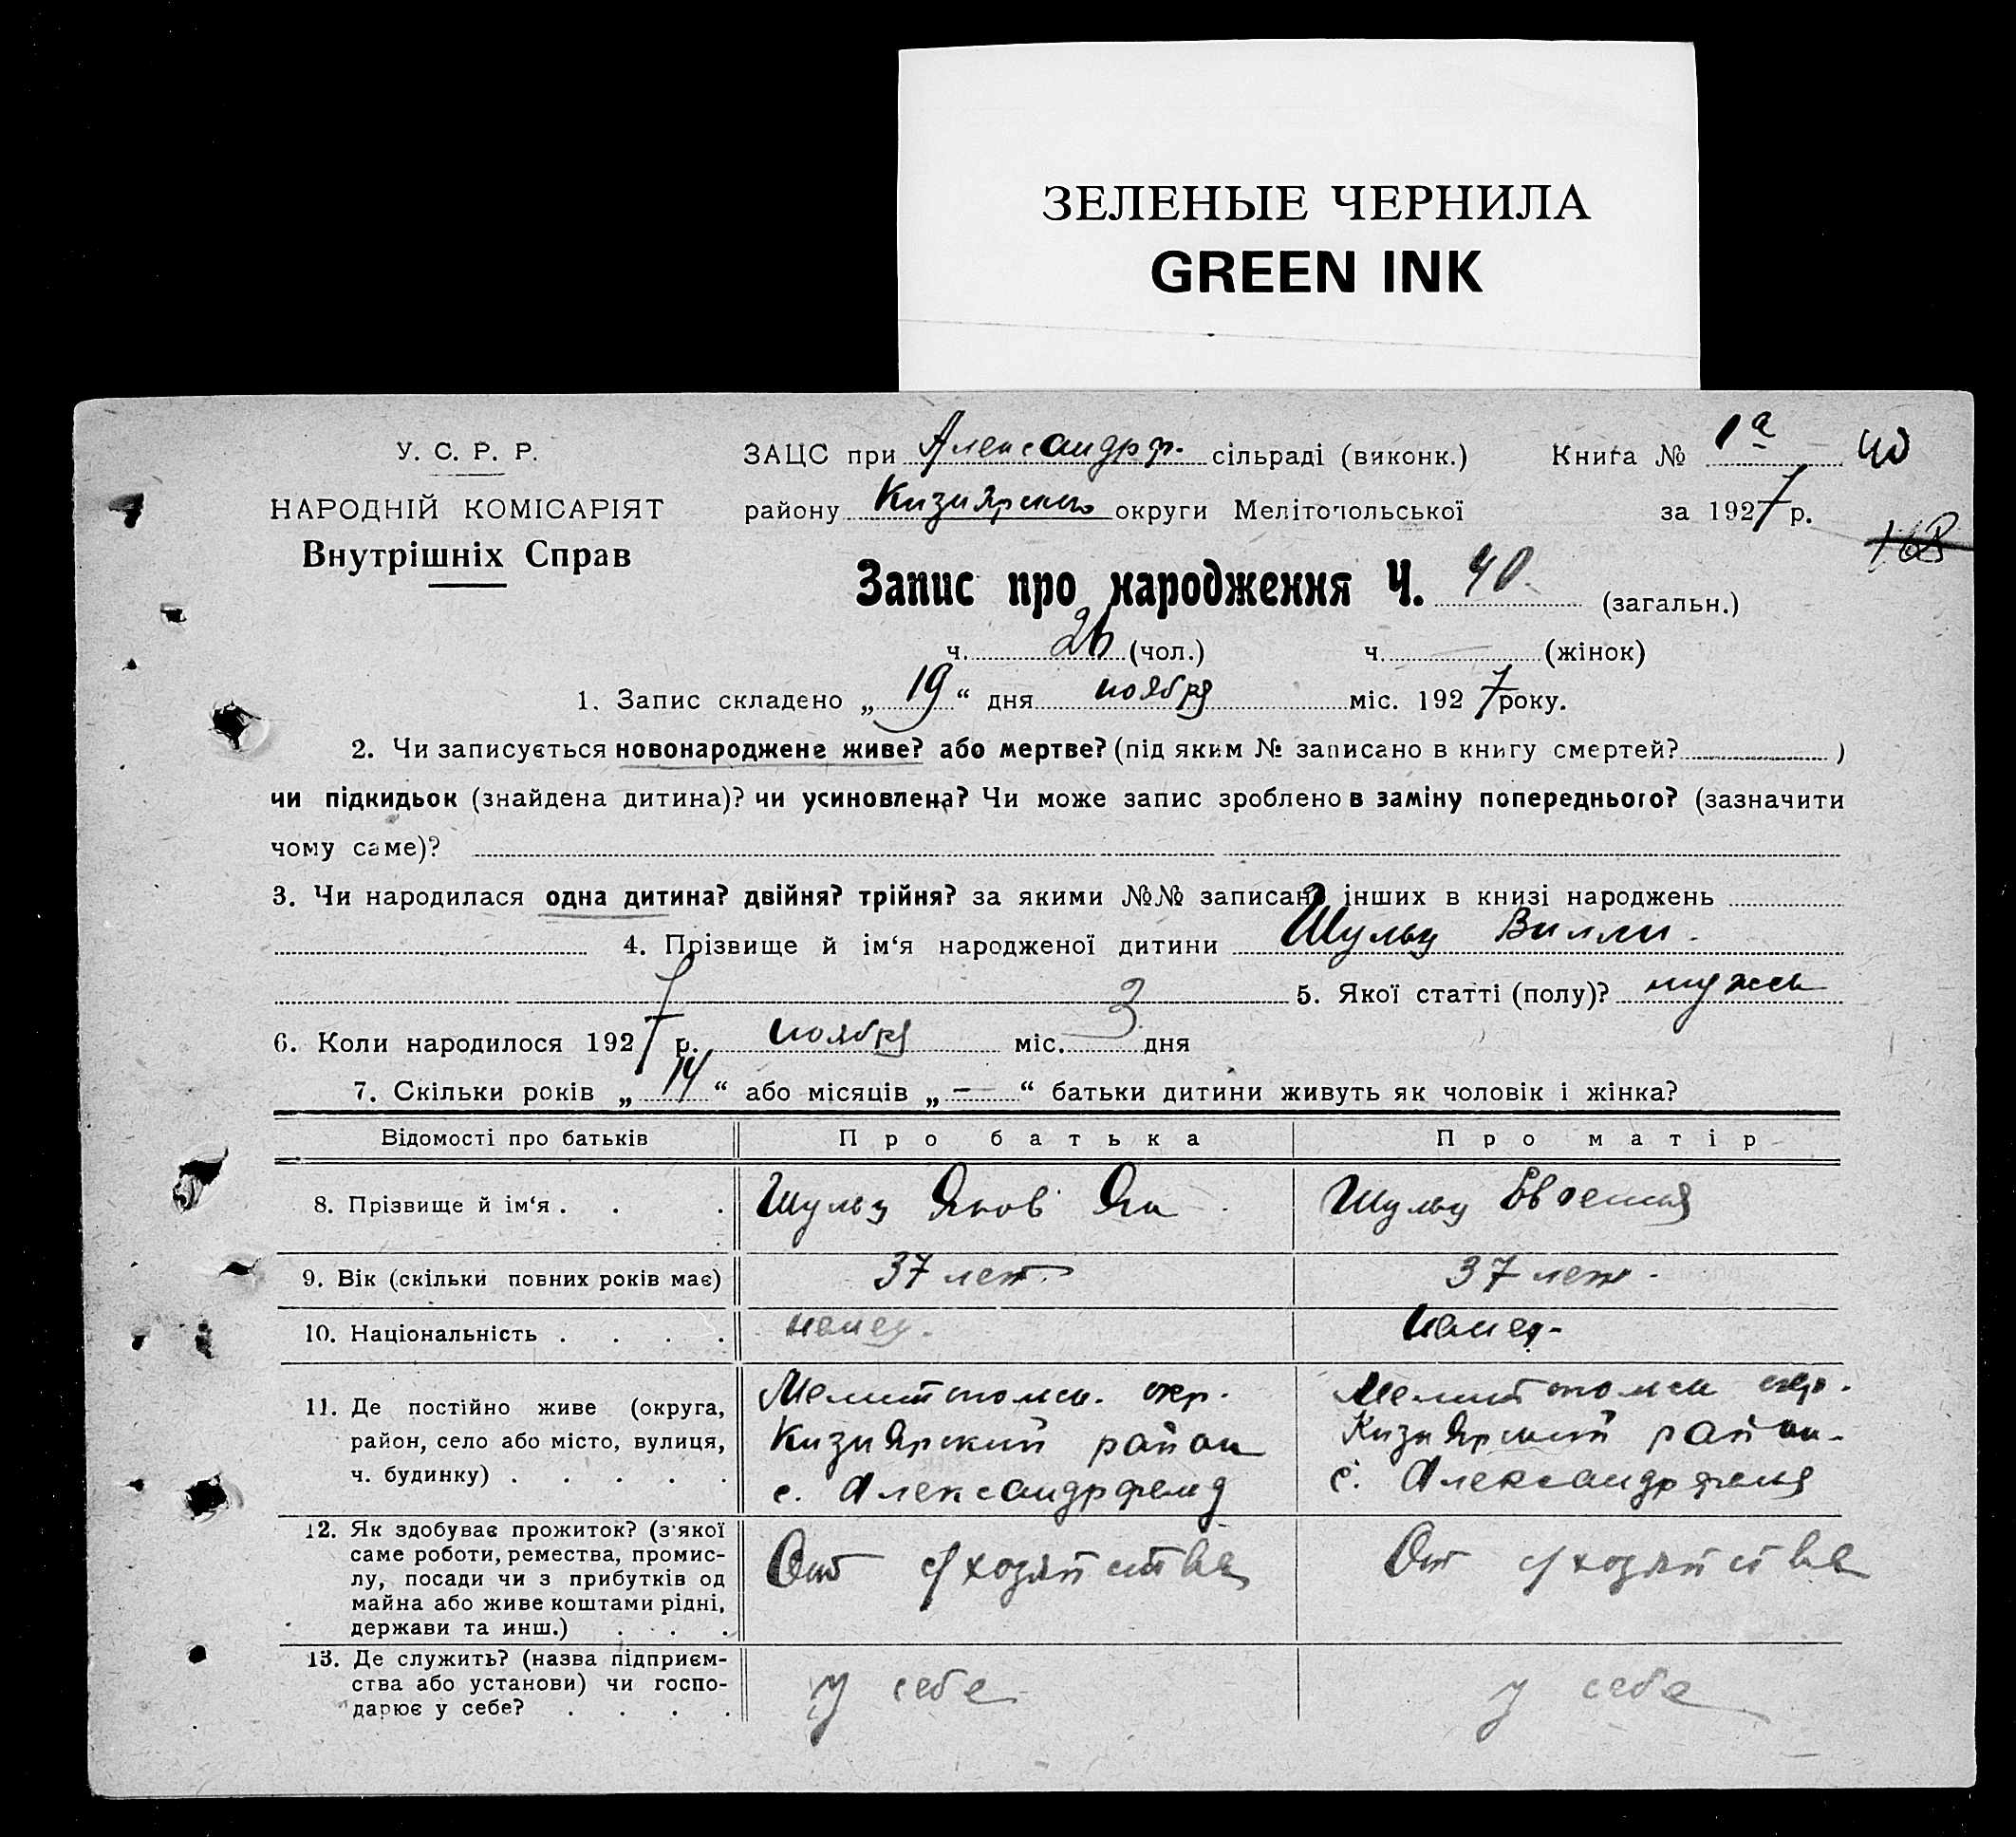 ЗЕЛЕНЫЕ ЧЕРНИЛА
GREEN INK
У. С. Р. Р.
НАРОДНІЙ КОМІСАРІЯТ
Внутрішніх Справ
ЗАЦС при Александрф. сільраді (виконк.) Книга № 1а 40
району Кизиярского округи Мелітопольської за 1927 р.
168
Запис про народження Ч. 40 (загальн.)
ч. 26 (чол.) ч. — (жінок)
1. Запис складено „19“ дня ноября міс. 1927 року.
2. Чи записується новонароджене живе? або мертве? (під яким № записано в книгу смертей? )
чи підкидьок (знайдена дитина)? чи усиновлена? Чи може запис зроблено в заміну попереднього? (зазначити
чому саме)?
3. Чи народилася одна дитина? двійня? трійня? за якими №№ записано інших в книзі народжень
4. Прізвище й ім‘я народженої дитини Шульц Вилли.
5. Якої статті (полу)? мужск
6. Коли народилося 1927 р. ноября міс. 3 дня
7. Скільки років „14“ або місяців „—“ батьки дитини живуть як чоловік і жінка?
Відомості про батьків Про батька Про матір
8. Прізвище й ім‘я . . . Шульц Яков Як Шульц
9. Вік (скільки повних років має) 37 лет. 37 лет.
10. Національність . . . . немец. немец.
11. Де постійно живе (округа,
район, село або місто, вулиця,
ч. будинку) . . . . .
Мелитопольск. окр.
Кизиярский район
с. Александрфельд
Мелитопольск окр.
Кизиярский район.
с. Александрфельд
12. Як здобуває прожиток? (з'якої
саме роботи, ремества, промис-
лу, посади чи з прибутків од
майна або живе коштами рідні,
держави та инш.) . . .
От с/хозяйства
От с/хозяйства
13. Де служить? (назва підприєм-
ства або установи) чи госпо-
дарює у себе? . . . .
у себе
у себе